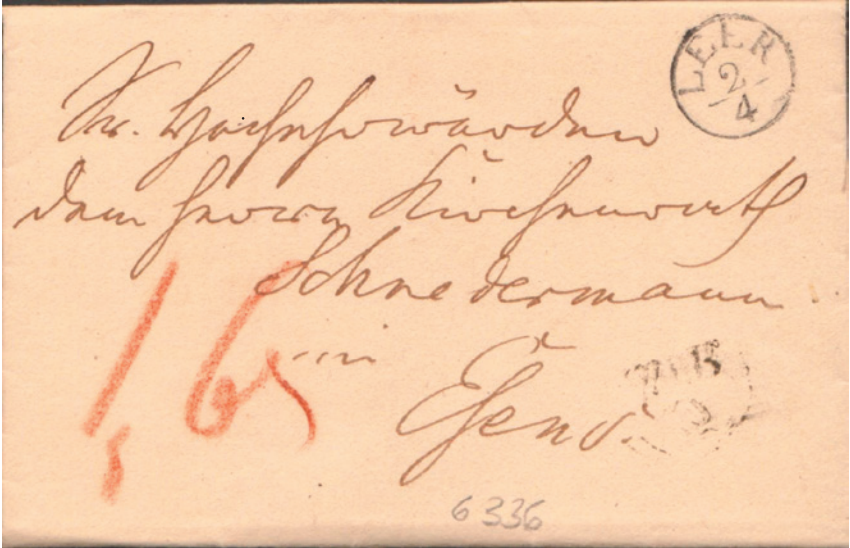 LEER
2/4
Sr. Hochehrwürden
dem Herrn Kirchenrath
Schnedermann
in
Esens.
6336